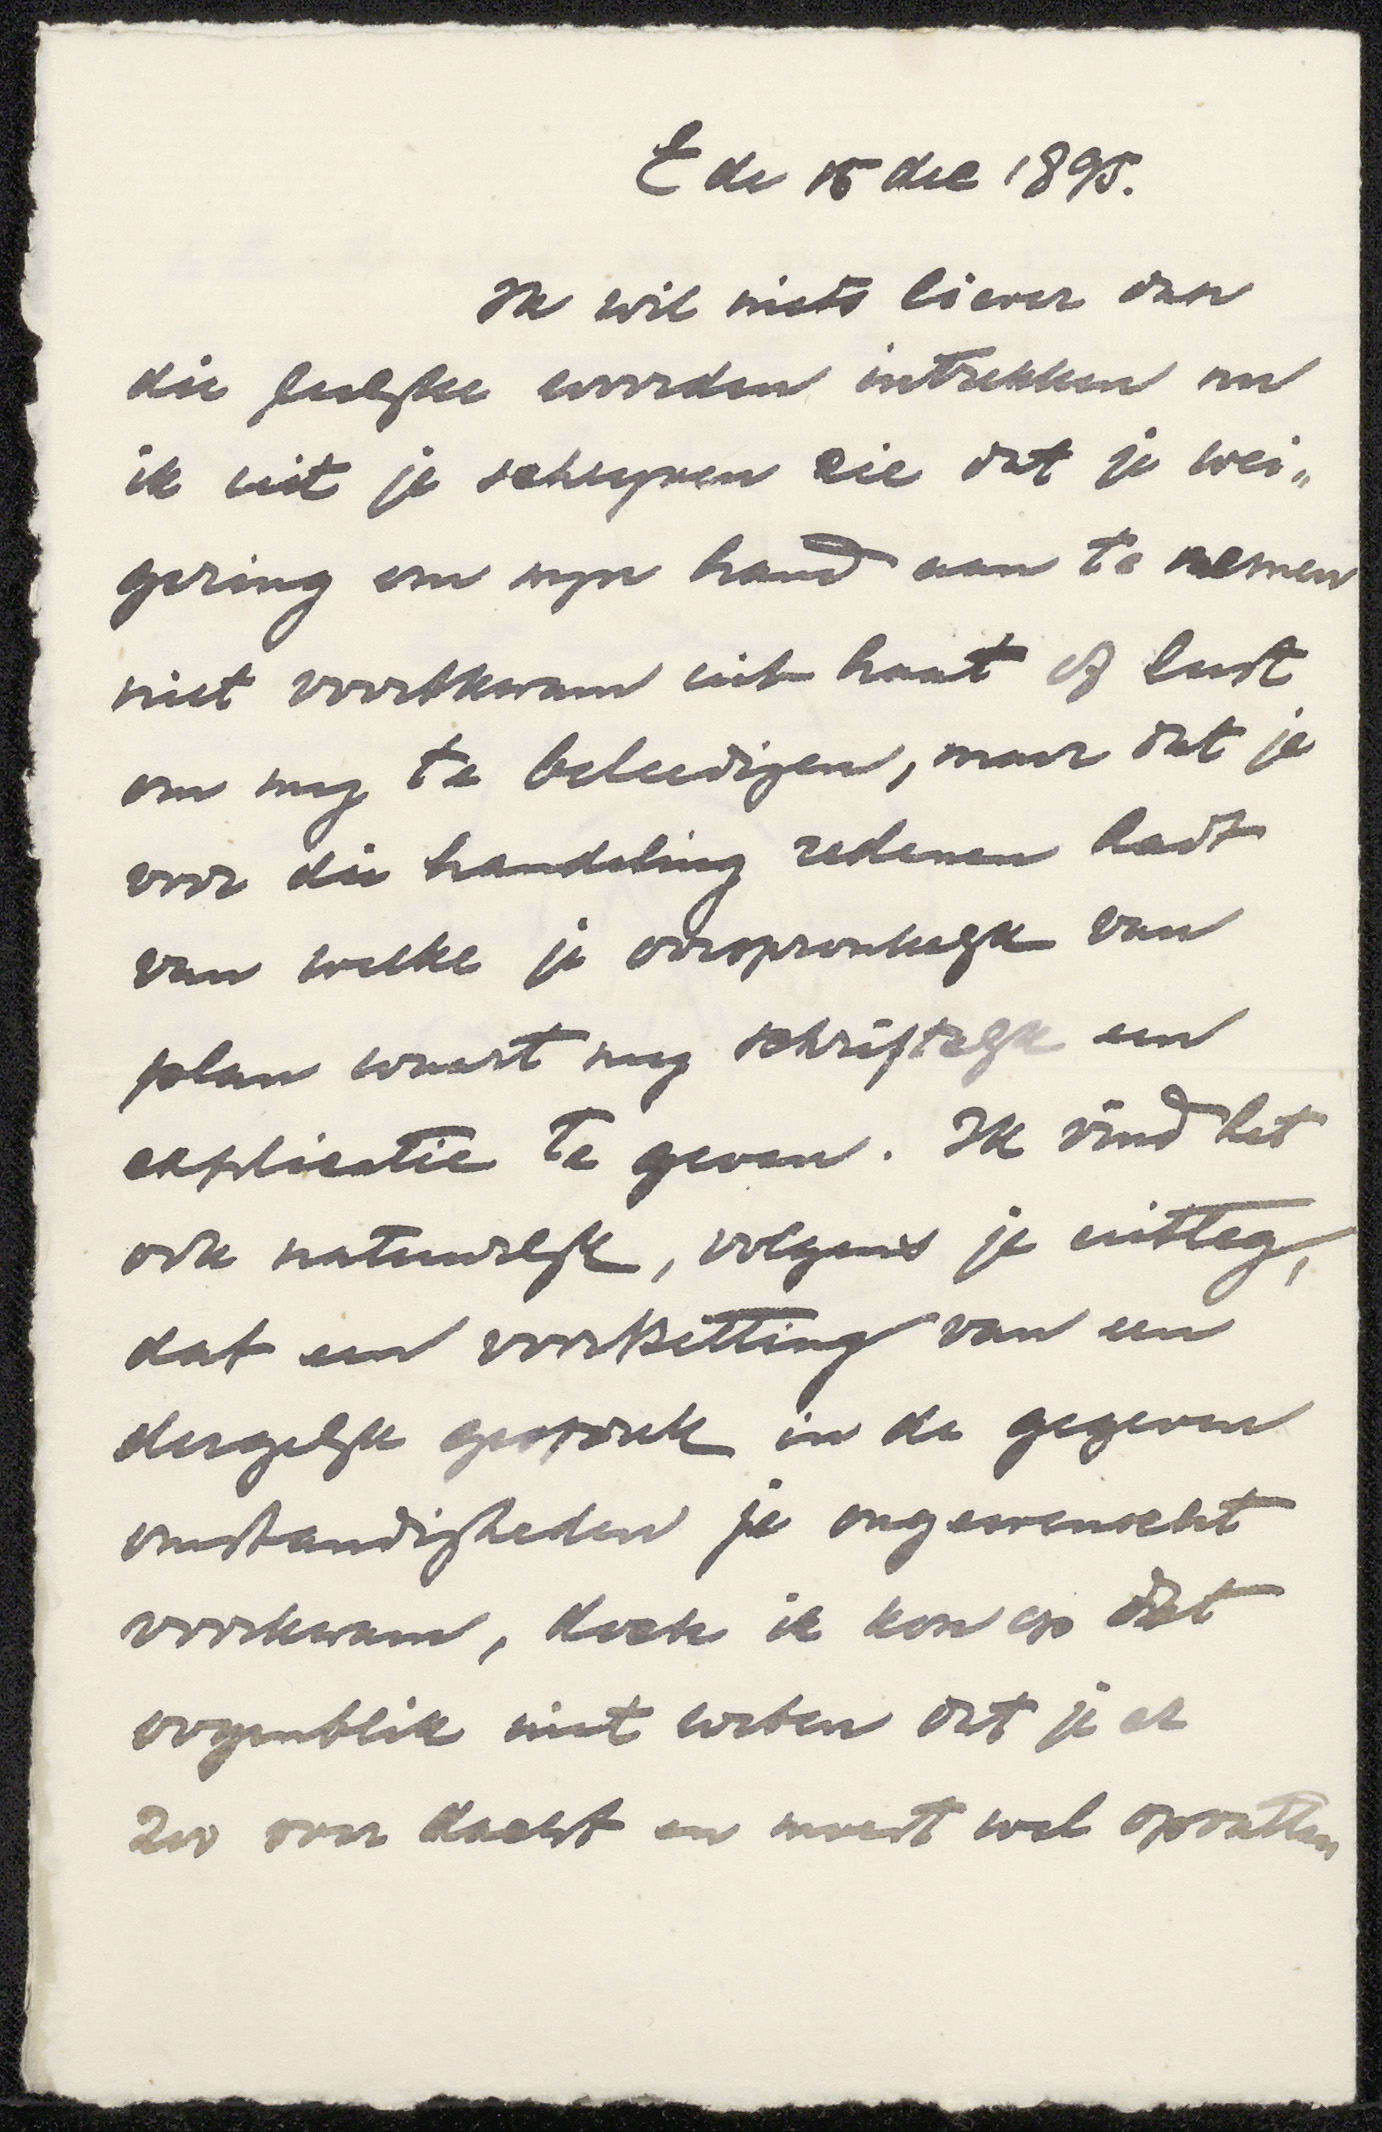 Ede 15 dec 1895.
Ik wil niets liever dan
die leelyke woorden intrekken nu
ik uit je schryven zie dat je wei„
gering om myn hand aan te nemen
niet voortkwam uit haat of lust
om my te beleedigen, maar dat je
voor die handeling redenen hadt
van welke je oorspronkelyk van
plan waart my schriftelyk een
explicatie te geven. Ik vind het
ook natuurlyk, volgens je uitleg,
dat een voortzetting van een
dergelyk gesprek in de gegeven
omstandigheden je ongewenscht
voorkwam, doch ik kon op dat
oogenblik niet weten dat je er
zoo over dacht en moest wel opvatten